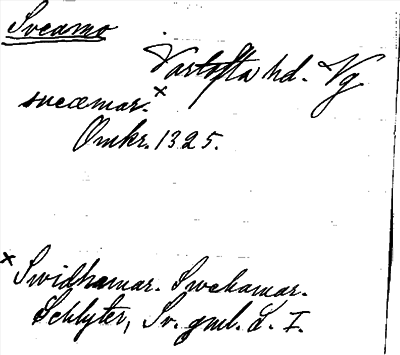 Sveamo
Vartofta hd. Vg
suecæmar. x
Omkr. 1325.
x Swidhamar. Swehamar.
Schlyter, Sv. gml. L. I.